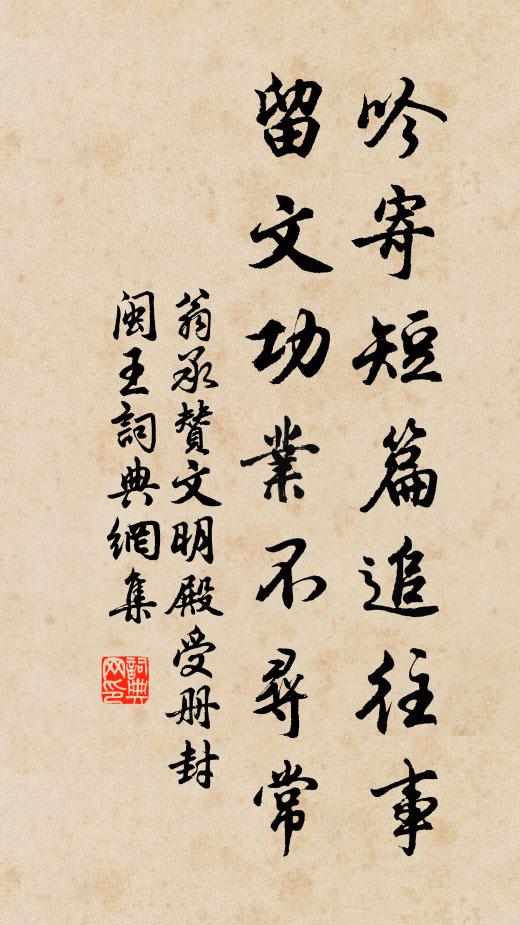 吟寄短篇追往事
留文功業不尋常
翁承贊文明殿受册封
閩王詞典網集
詞典
网印